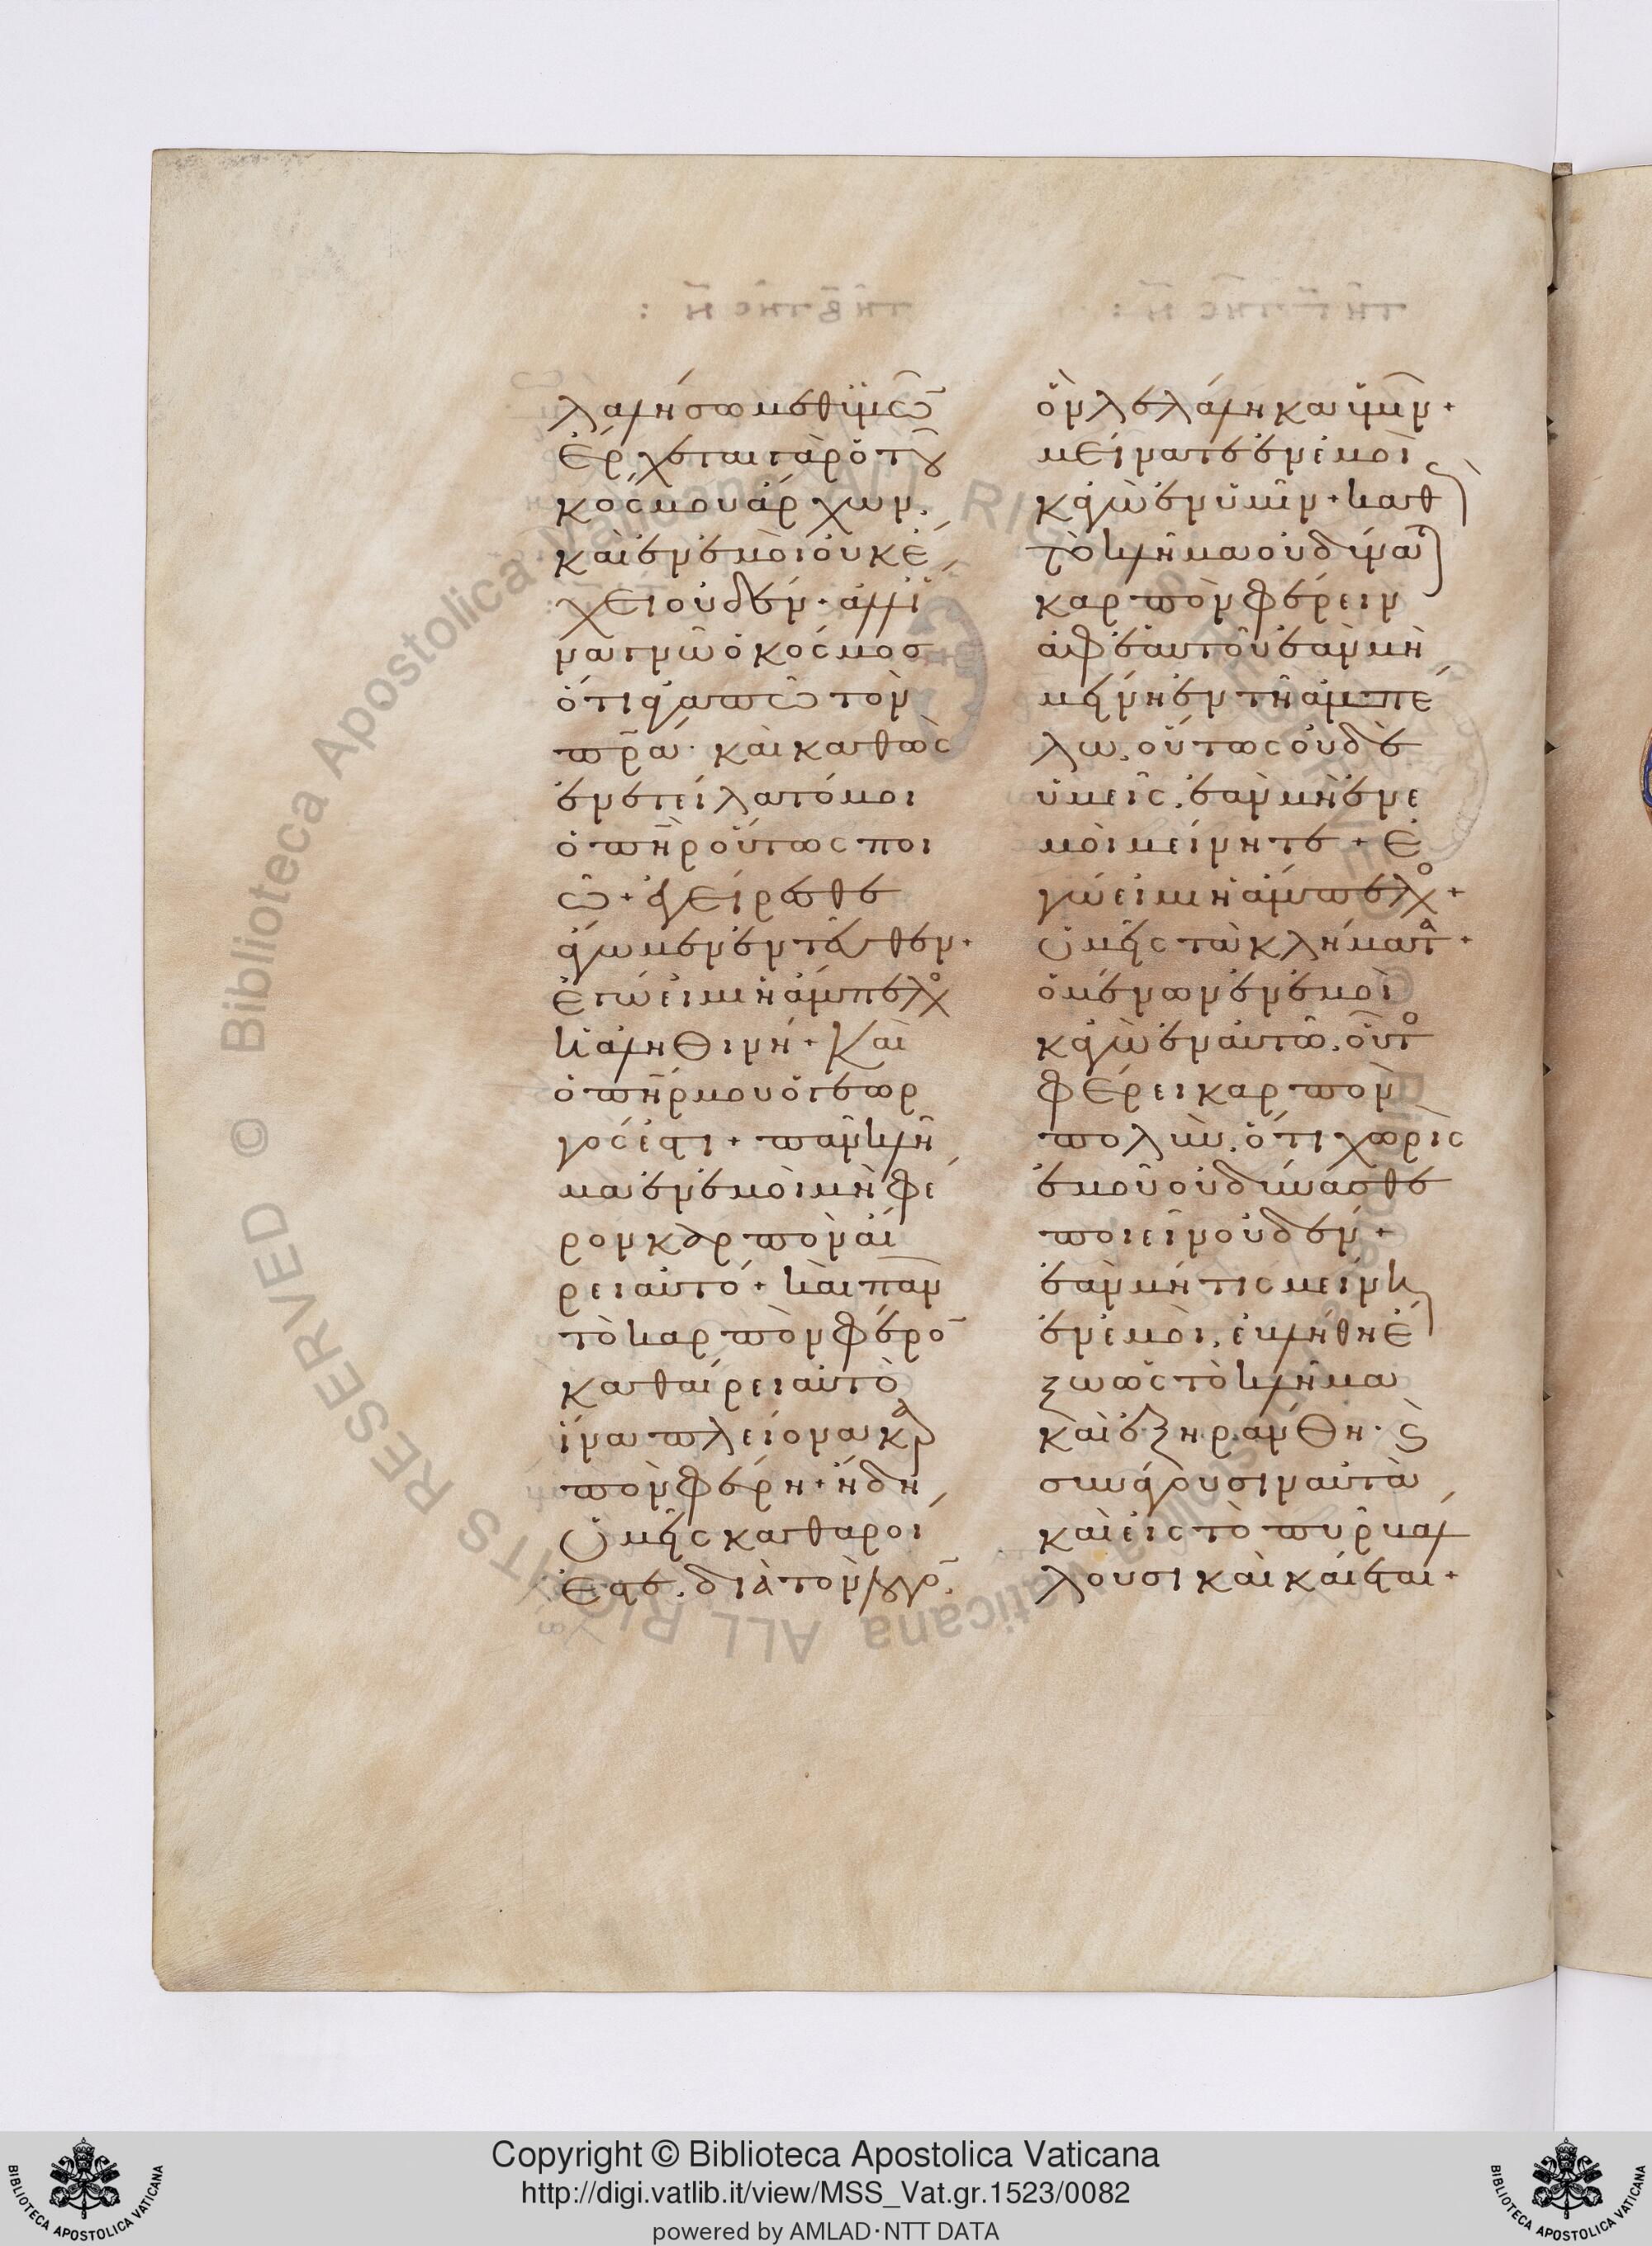 λαλήσω μεθ ὑμῶ̅
ἔρχεται γὰρ ὁ τοῦ
κόσμου ἄρχων.
καὶ ἐν ἐμοὶ οὐκ ἔ
χει οὐδέν· ἀλλ ἵ
να γνῶ ὁ κόσμος
ὅτι ἀγαπῶ τὸν
π̅ρ̅α· καὶ καθὼς
ἐνετείλατό μοι
ὁ π̅η̅ρ οὕτως ποι
ῶ + ἐγείρεσθε
ἄγωμεν ἐντεῦθεν·
ἐγώ εἰμι ἡ ἄμπελο
ἡ ἀληθινή + Καὶ
ὁ π̅η̅ρ μου ὁ γεωρ
γός ἐστι + πᾶν κλῆ
μα ἐν ἐμοὶ μὴ φέ
ρον καρπὸν αἴ
ρει αὐτό + καὶ πᾶν
τὸ καρπὸν φέρο̅
καθαίρει αὐτὸ
ἵνα πλείονα καρ
πὸν φέρη + ἤδη
ὑμεῖς καθαροί
ἐστε. διὰ τὸν λόγο̅
ὃν λελάληκα ὑμῖν +
μείνατε ἐν ἐμοὶ
κἀγὼ ἐν ὑμῖν + καθ
τὸ κλῆμα οὐ δύνατ
καρπὸν φέρειν
ἀφ ἑαυτοῦ ἐὰν μὴ
μείνη ἐν τῆ ἀμπέ
λω. οὕτως οὐδὲ
ὑμεῖς. ἐὰν μὴ ἐν ἐ
μοὶ μείνητε + Ἐ
γώ εἰμι ἡ ἄμπελο +
ὑμεῖς τὰ κλήματ +
ὁ μένων ἐν ἐμοὶ
κἀγὼ ἐν αὐτῶ. οὗτο
φέρει καρπὸν
πολύν. ὅτι χωρὶς
ἐμοῦ οὐ δύνασθε
ποιεῖν οὐδέν +
ἐὰν μή τις μείνη
ἐν ἐμοὶ. ἐκλήθη ἔ
ξω ὡς τὸ κλῆμα
καὶ ἐξηράνθη· ϗ
συνάγουσιν αὐτὰ
καὶ εἰς τὸ πῦρ βάλ
λουσι καὶ καίεται +
Copyright © Biblioteca Apostolica Vaticana
http://digi.vatlib.it/view/MSS_Vat.gr.1523/0082
powered by AMLAD·NTT DATA